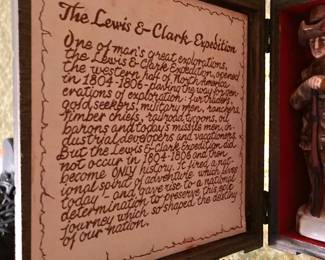 The Lewis & Clark Expedition
One of man's great explorations,
the Lewis & Clark Expedition, opened
the western half of North America
in 1804-1806 - paving the way for gen-
erations of exploration - fur traders,
gold seekers, military men, ranchers,
timber chiefs, railroad tycoons, oil
barons and today's missile men, in-
dustrial developers and vacationers.
But the Lewis & Clark Expedition did
not occur in 1804-1806 and then
become ONLY history. It fired a nat-
ional spirit of adventure which lives
today - and gave rise to a national
determination to preserve this epic
journey which so shaped the destiny
of our nation.